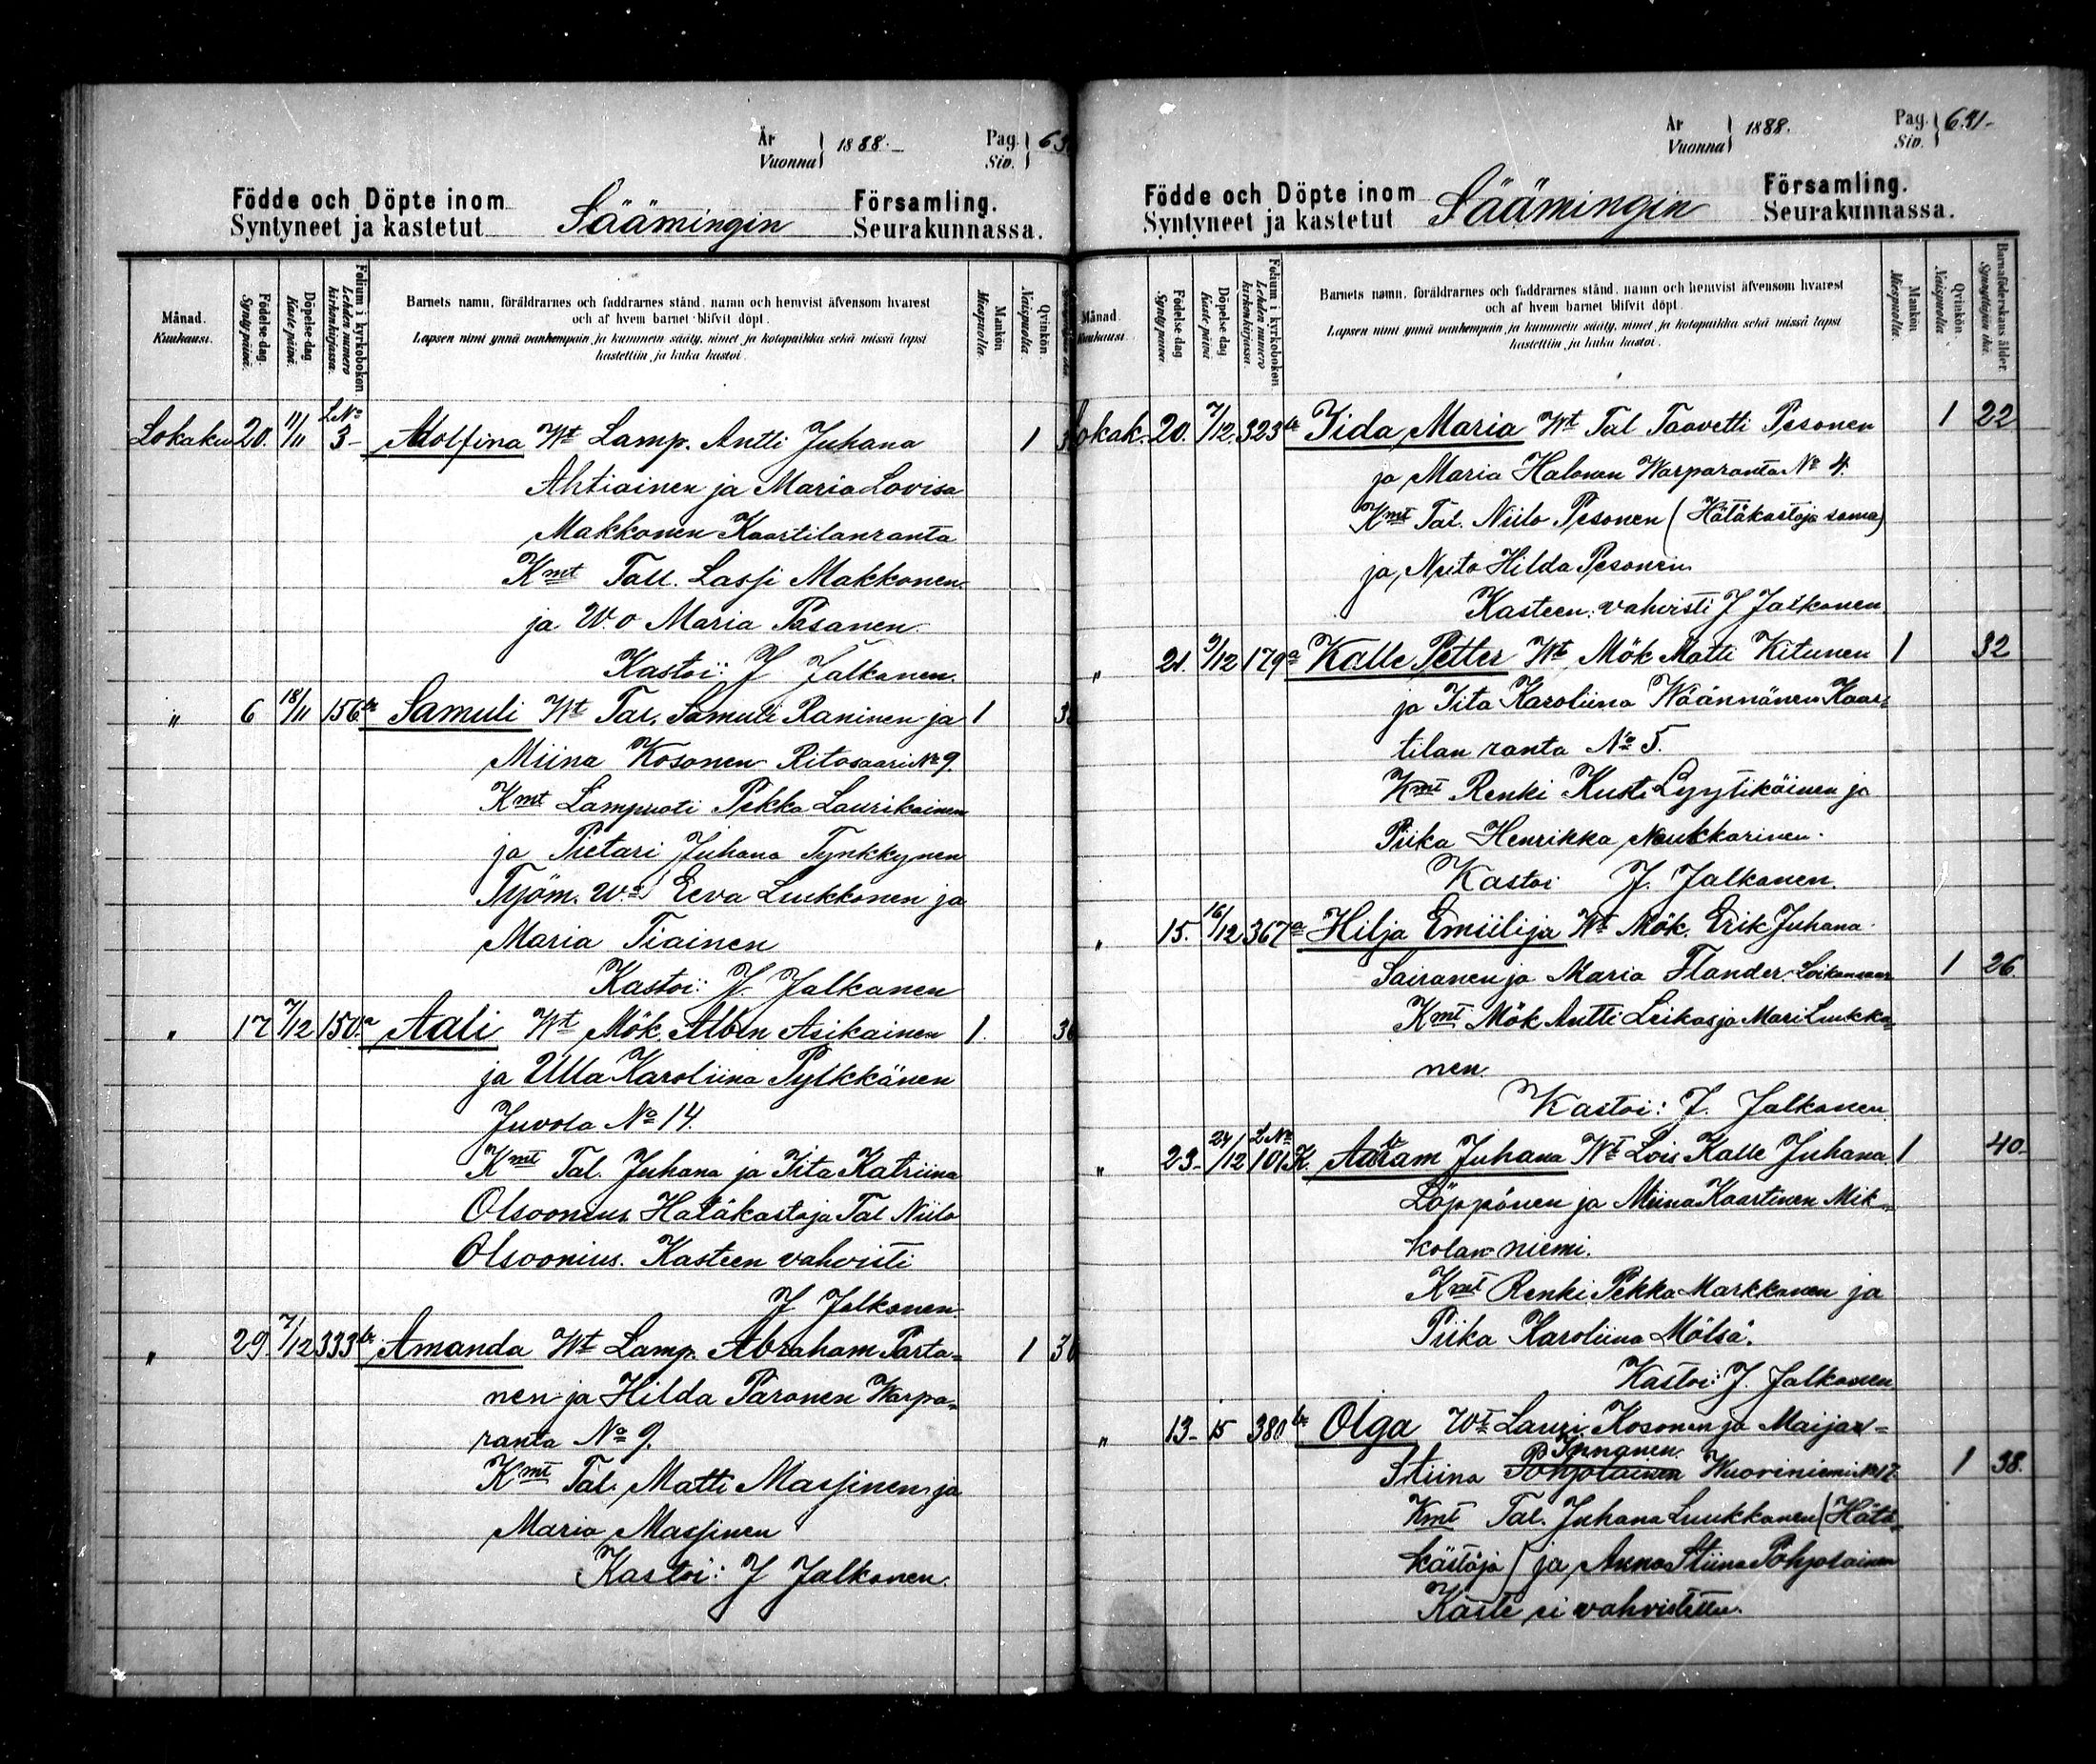 År
Vuonna } 1888. Pag.
Siv. }
Födde och Döpte inom Säämingin Församling.
Syntyneet ja kastetut Seurakunnassa.
Månad. Kuukausi.
Födelse-dag. Syntypäivä.
Döpelse-dag. Kastepäivä.
Folium i kyrkoboken Lehden numero kirkonkirjassa.
Barnets namn, föräldrarnes och faddrarnes stånd, namn och hemvist äfvensom hvarest
och af hvem barnet blifvit döpt.
Lapsen nimi ynnä vanhempain ja kummein sääty, nimet ja kotopaikka sekä missä lapsi
kastettiin ja kuka kastoi.
Mankön Miespuolia.
Qvinkön. Naispuolia
L No
Lokaku 20. 11/11 3 Adolfina Wt Lamp. Antti Juhana 1
Ahtiainen ja Maria Lovisa
Makkonen Kaartilanranta
Kmt Tall. Lassi Makkonen
ja W.o Maria Pasanen.
Kastoi: J Jalkanen.
" 6 18/11 156 b Samuli Wt Tal. Samuli Raninen ja 1
Miina Kosonen Ritosaari No 9.
Kmt Lampuoti Pekka Laurikainen
ja Pietari Juhana Tynkkynen
Työm. W.o Eeva Luukkonen ja
Maria Tiainen
Kastoi: J. Jalkanen
" 17 7/12 150 a Aali Wt Mök. Albin Asikainen 1.
ja Ulla Karoliina Pylkkänen
Juvola No 14.
Kmt Tal. Juhana ja Iita Katriina
Olsoonius Hätäkastaja Tal Niilo
Olsoonius. Kasteen vahvisti
J Jalkonen.
" 29. 7/12 333 b Amanda Wt Lamp. Abraham Parta=
nen ja Hilda Paronen Warpa= 1
ranta No 9.
Kmt Tal. Matti Massinen ja
Maria Massinen
Kastoi: J Jalkonen.
År
Vuonna } 1888. Pag.
Siv. } 691-
Födde och Döpte inom Säämingin Församling.
Syntyneet ja kastetut Seurakunnassa.
Månad. Kuukausi.
Födelse dag Syntypäivä.
Döpelse dag Kastepäivä
Folium i kyrkoboken Lehden numero kirkonkirjassa.
Barnets namn, föräldrarnes och faddrarnes stånd, namn och hemvist äfvensom hvarest
och af hvem barnet blifvit döpt.
Lapsen nimi ynnä vanhempain ja kummein sääty, nimet ja kotopaikka sekä missä lapsi
kastettiin ja kuka kastoi.
Mankön Miespuolia.
Qvinkön. Naispuolia.
Barnaföderskans ålder. Synnyttäjän ikä.
Lokak. 20. 7/12. 323 b Iida Maria Wt Tal Taavetti Pesonen 1 22
ja Maria Halonen Warparanta No 4.
Kmt Tal. Niilo Pesonen (Hätäkastaja sama)
ja Neito Hilda Pesonen
Kasteen vahvisti J Jalkonen
" 21. 9/12 179 a Kalle Petter Wt Mök Matti Kitunen 1 32
ja Iita Karoliina Wäännänen Kaar=
tilan ranta No 5.
Kmt Renki Kusti Lyytikäinen ja
Piika Henrikka Naukkarinen.
Kastoi J. Jalkanen.
" 15. 16/12 367 a Hilja Emiilija Wt Mök. Erik Juhana
Sairanen ja Maria Flander Loikansaar 1 26.
Kmt Mök Antti Leikas ja Mari Luukko=
nen.
Kastoi: J. Jalkanen
" 23. 24/12 L No 101 K. Aavram Juhana Wt Lois Kalle Juhana 1 40.
Löppönen ja Miina Kaartinen Mik=
kolan niemi.
Kmt Renki Pekka Markkanen ja
Piika Karoliina Mölsä.
Kastoi: J. Jalkanen
" 13. 15 380 b Olga Wt Lauri Kosonen ja Maija=
Innanen
Stiina Pohjolainen Wuoriniemi No 17. 1 38.
Kmt Tal. Juhana Luukkanen (Hätä=
kastaja) ja Anna Stiina Pohjolainen
Kaste ei vahvistettu.